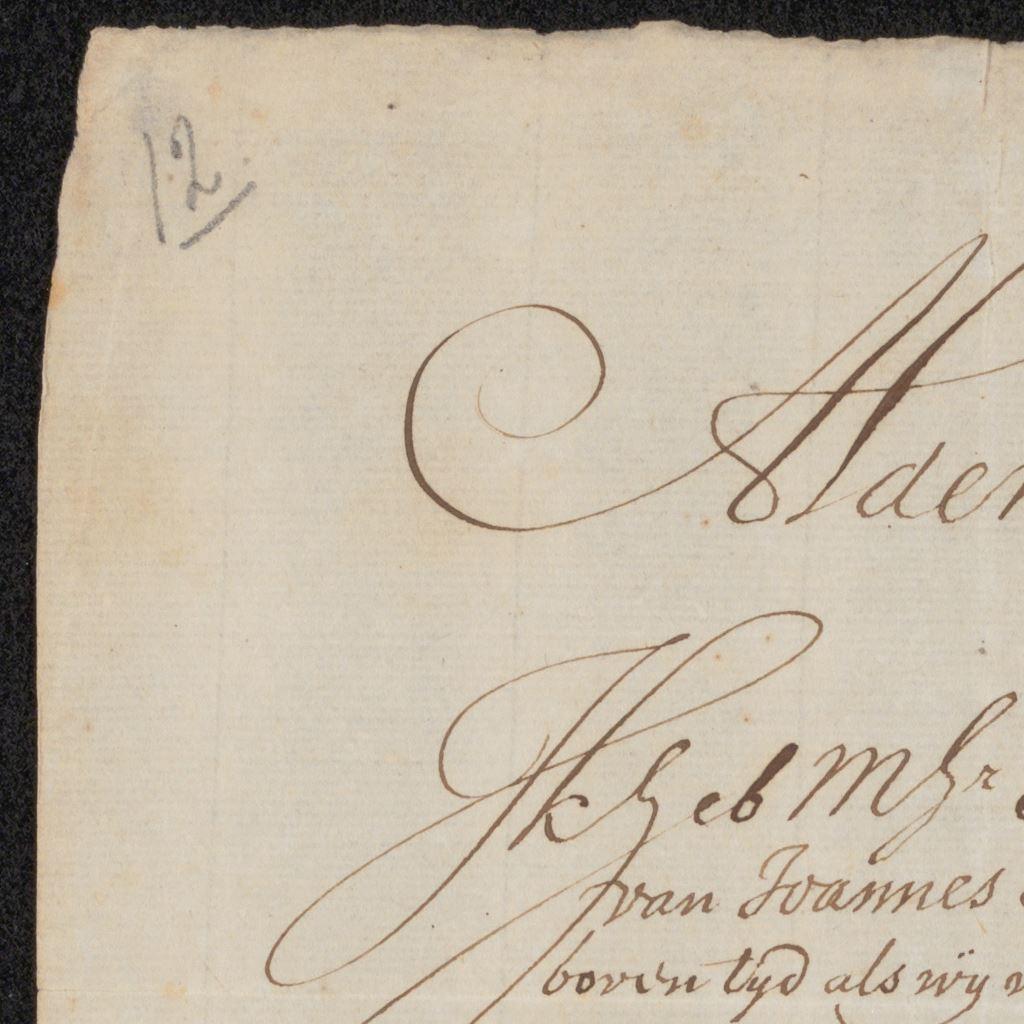 12
Alder
Ik heb M hr
van Joannes
boven tyd als wÿ